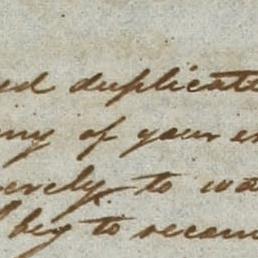 ed duplicate
ny of your
erely to wa
beg to recom